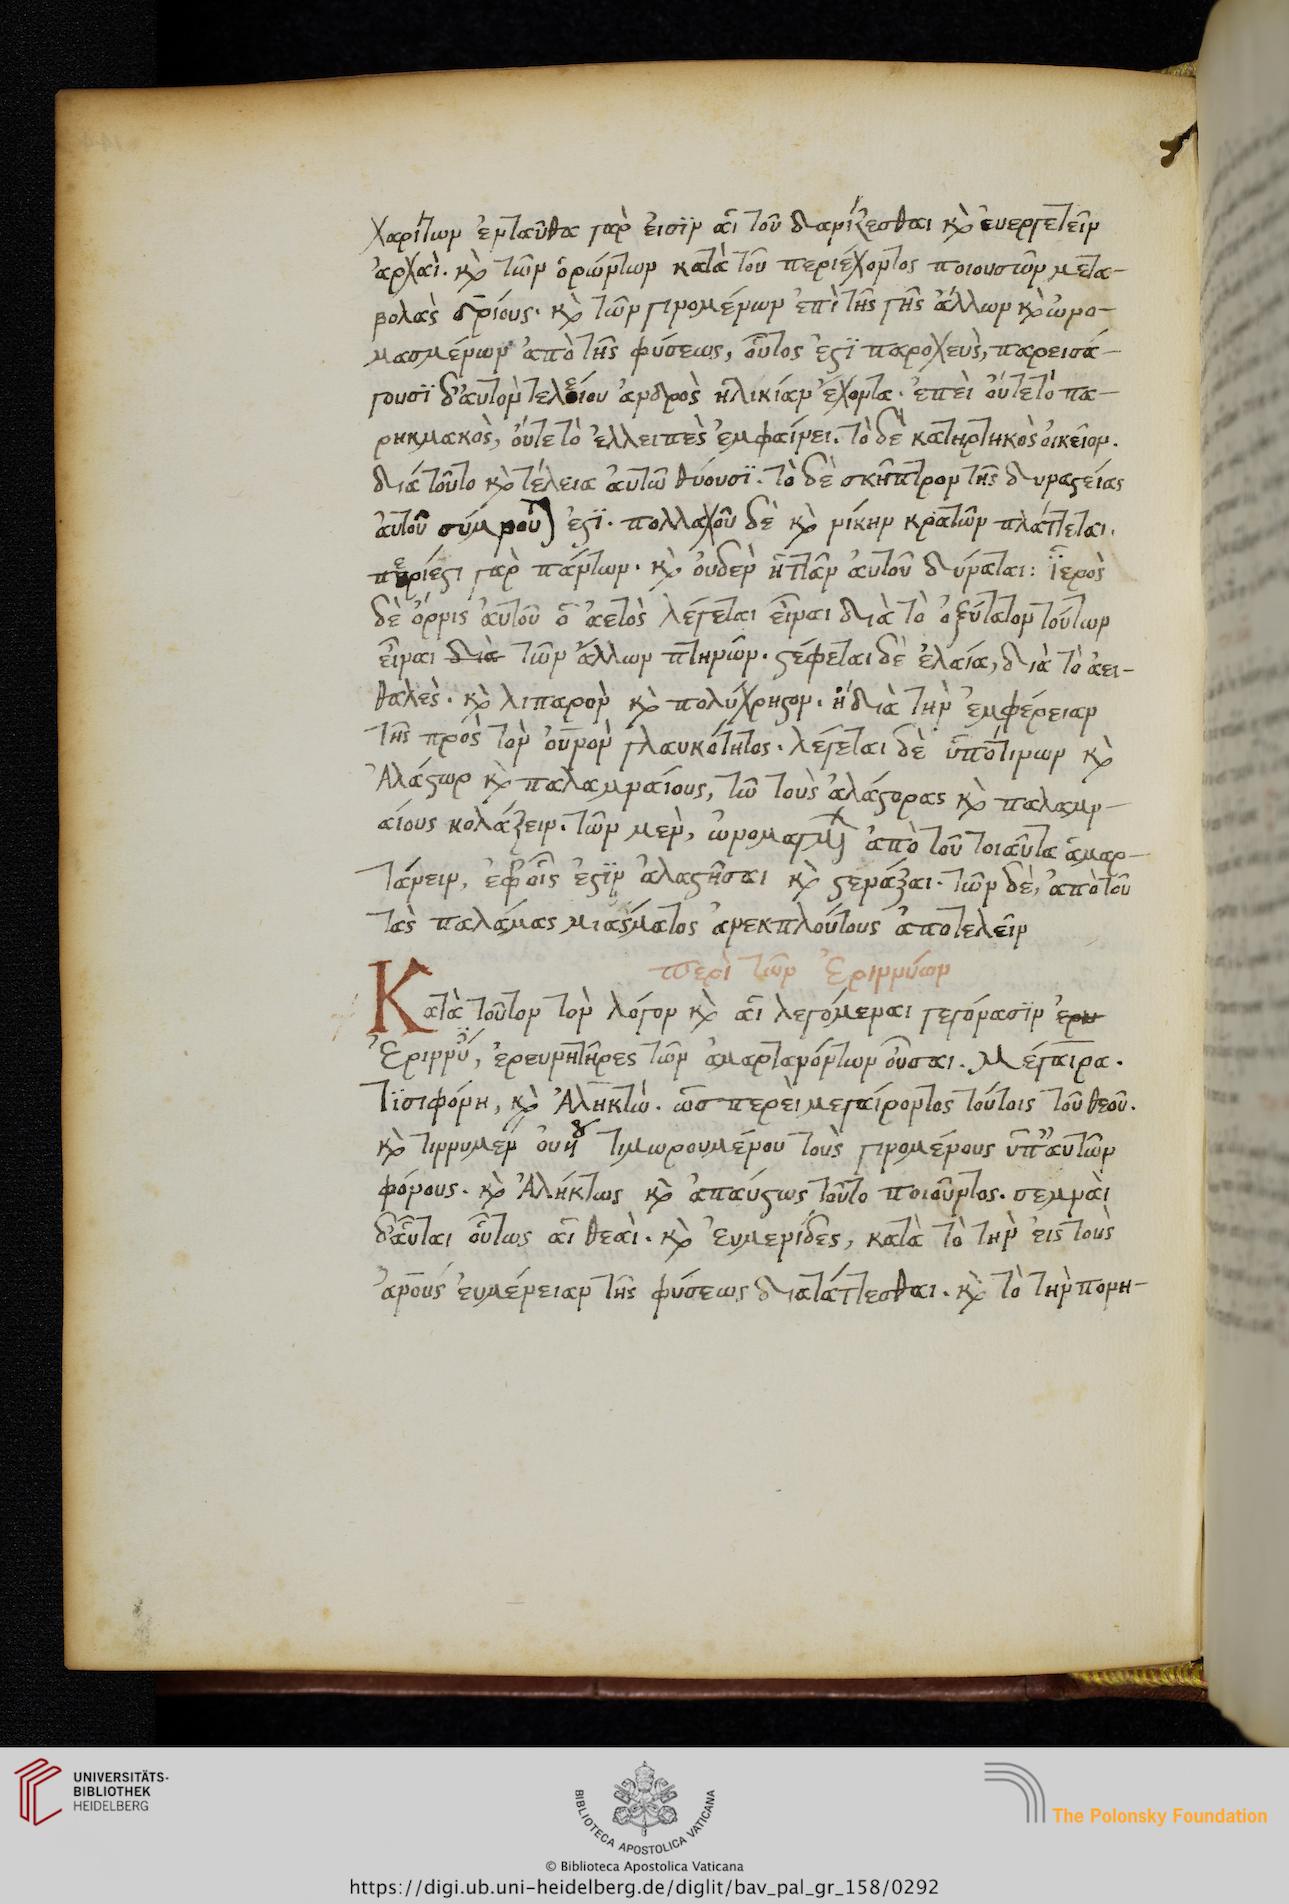 Χαρίτων ἐνταῦθα γὰρ ἐισὶν αἱ τοῦ δαρίζεσθαι κὴ ἐυεργετεῖν
ἀρχαὶ. κὴ τῶν ὁρώντων κατὰ τοῦ περιέχοντος ποιουσῶν μετα-
βολὰς κὴ τῶν γινομένων ἐπὶ τῆς γῆς ἄλλων κὴ ὠνο-
μασμένων ἀπὸ τῆς φύσεως, οὗτος ἐστὶ παροχεὺς, παρεισά-
γουσὶ δ᾽ αυτὸν τελείου ἀνδρὸς ἡλικίαν ἔχοντα. ἐπεὶ ὄυτε τὸ πα-
ρηκμακὸς, ὄυτε τὸ ἐλλειπὲς ἐμφαίνει. τὸ δὲ κατηρτηκὸς ὀικεῖον.
διά τοῦτο κὴ τέλεια ἀυτῶ θύουσὶ. τὸ δὲ σκῆπτρον τῆς δυναστείας
ἀυτοῦ ἐστὶ. πολλαχοῦ δὲ κὴ νίκην κρατῶν πλάττεται.
περίεστι γὰρ πάντων. κὴ ὀυδὲν ἡττᾶν ἀυτοῦ δύναται: ἱερὸς
δὲ ὄρνις ἀυτοῦ ὁ ἀετὸς λέγεται εἶναι διὰ τὸ ὀξύτατον τούτων
εἶναι διὰ τῶν ἄλλων πτηνῶν. στέφεται δὲ ἐλαία, διὰ τὸ ἀει-
θαλὲς. κὴ λιπαρὸν κὴ πολύχρηστον. ἢ διὰ τὴν ἐμφέρειαν
τῆς πρὸς τὸν ὀυνὸν γλαυκότητος. λέγεται δὲ ὑπὸ τινων κὴ
Ἀλάστωρ κὴ παλαμναίους, τῶ τοὺς ἀλάστορας κὴ παλαμν-
αίους κολάζειν. τῶν μὲν, ἀπὸ τοῦ τοιαῦτα ἁμαρ-
τάνειν, ἐφ᾽ οἷς ἐστὶν ἀλαστῆσαι κὴ στενάξαι. τῶν δὲ, ἀπὸ τοῦ
τὰς παλάμας μιάσματος ἀνεκπλούτους ἀποτελεῖν
περὶ τῶν Ἐριννύων
Κατὰ τοῦτον τὸν λόγον κὴ αἱ λεγόμεναι γεγόνασὶν ἐρυ
Ἐριννΰ, ἐρευνητῆρες τῶν ἁμαρτανόντων οὖσαι. Μέγαιρα.
Τϊσιφόνη, κὴ Ἀληκτώ. ὡσπερὲι μεγαίροντος τούτοις τοῦ θεοῦ.
κὴ τιννυμέν ουή τιμωρουμένου τοὺς γινομένους ὑπ᾽ ἀυτῶν
φόνους. κὴ Ἀλήκτως κὴ ἀπαύστως τοῦτο ποιοῦντος. σεμναὶ
δ᾽ αὗται οὕτως αἱ θεαὶ. κὴ Ἐυμενίδες, κατὰ τὸ τὴν ἐις τοὺς
ἀνους ἐυμένειαν τῆς φύσεως διατάττεσθαι. κὴ τὸ τὴν πονη-
UNIVERSITÄTS-
BIBLIOTHEK
HEIDELBERG
BIBLIOTECA APOSTOLICA VATICANA
The Polonsky Foundation
© Biblioteca Apostolica Vaticana
https://digi.ub.uni-heidelberg.de/diglit/bav_pal_gr_158/0292